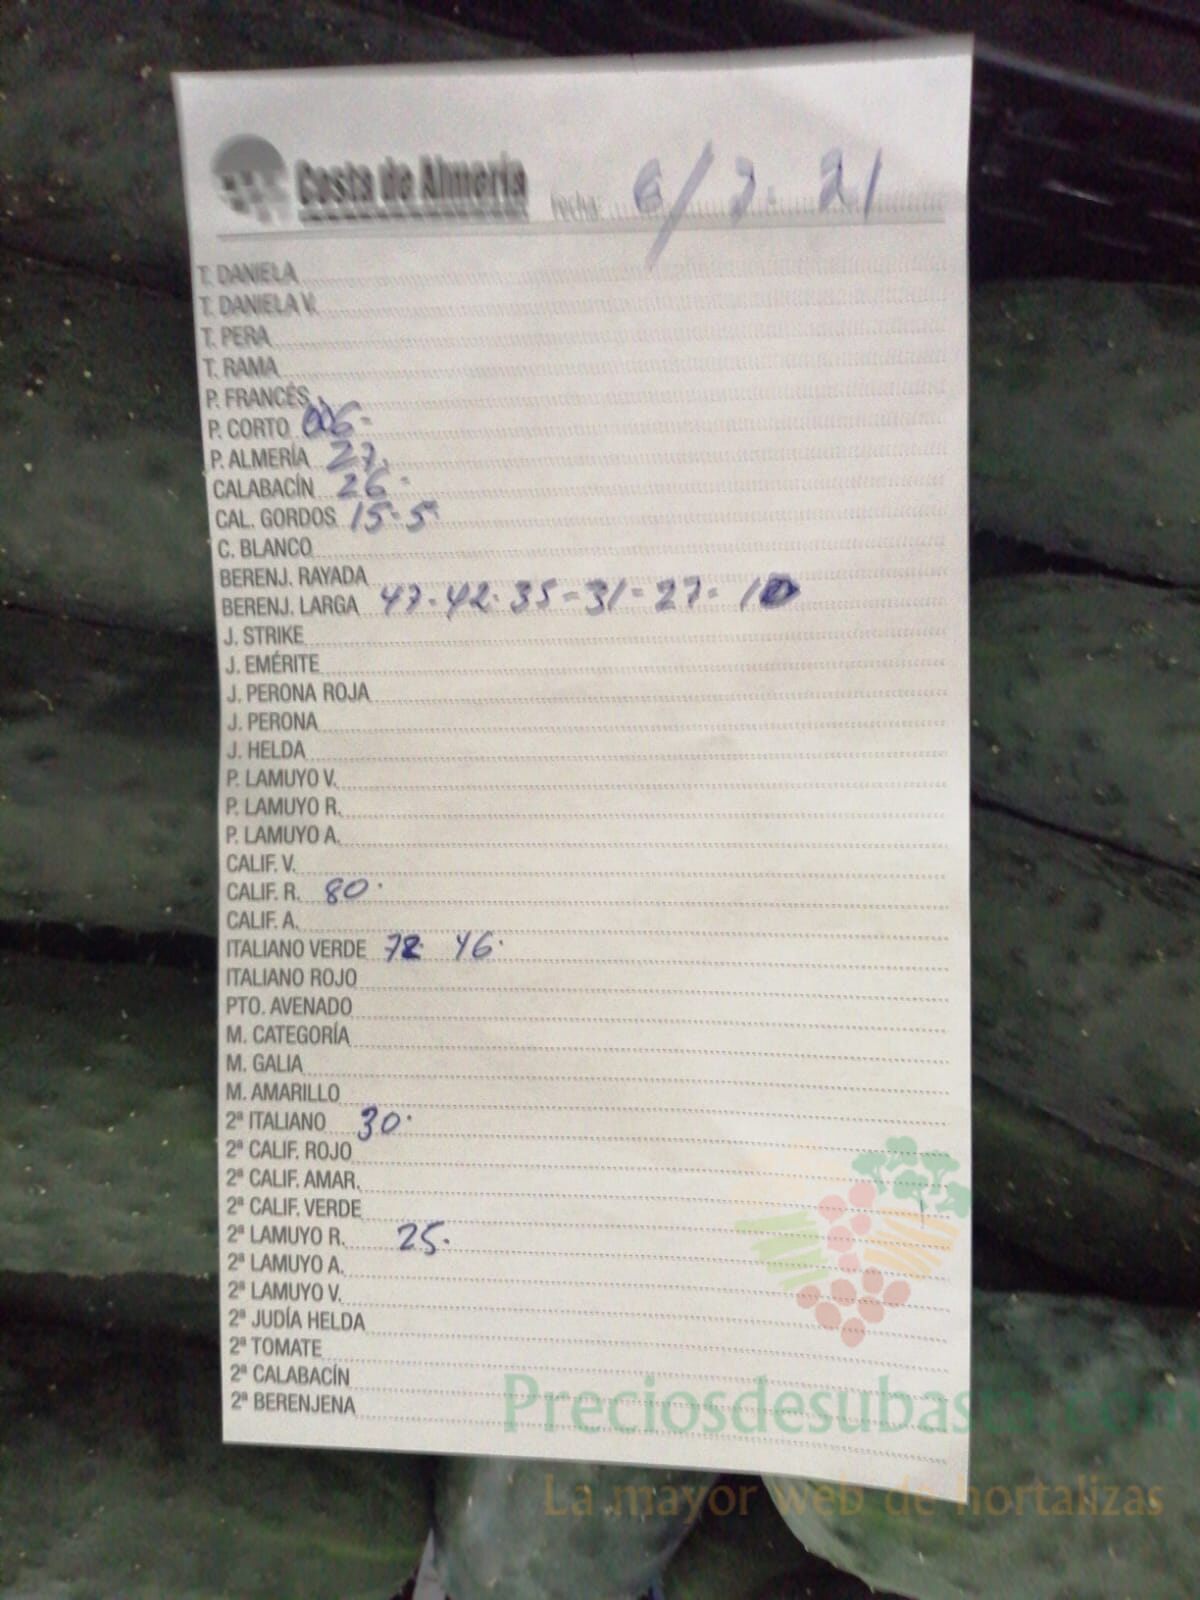 Costa de Almería fecha: 6/7. 21
T. DANIELA
T. DANIELA V.
T. PERA
T. RAMA
P. FRANCÉS
P. CORTO
P. ALMERÍA 27.
CALABACÍN 26.
CAL. GORDOS 15-5.
C. BLANCO
BERENJ. RAYADA
BERENJ. LARGA 47-42-35-31-27-10
J. STRIKE
J. EMÉRITE
J. PERONA ROJA
J. PERONA
J. HELDA
P. LAMUYO V.
P. LAMUYO R.
P. LAMUYO A.
CALIF. V.
CALIF. R. 80.
CALIF. A.
ITALIANO VERDE 72. 46.
ITALIANO ROJO
PTO. AVENADO
M. CATEGORÍA
M. GALIA
M. AMARILLO
2ª ITALIANO 30.
2ª CALIF. ROJO
2ª CALIF. AMAR.
2ª CALIF. VERDE
2ª LAMUYO R. 25.
2ª LAMUYO A.
2ª LAMUYO V.
2ª JUDÍA HELDA
2ª TOMATE
2ª CALABACÍN
2ª BERENJENA
Preciosdesubasta.com
La mayor web de hortalizas